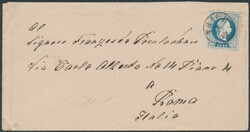 Al
Signore Francesco
Via Carlo Alberto No 14 Piano 4
a
Roma
Italia